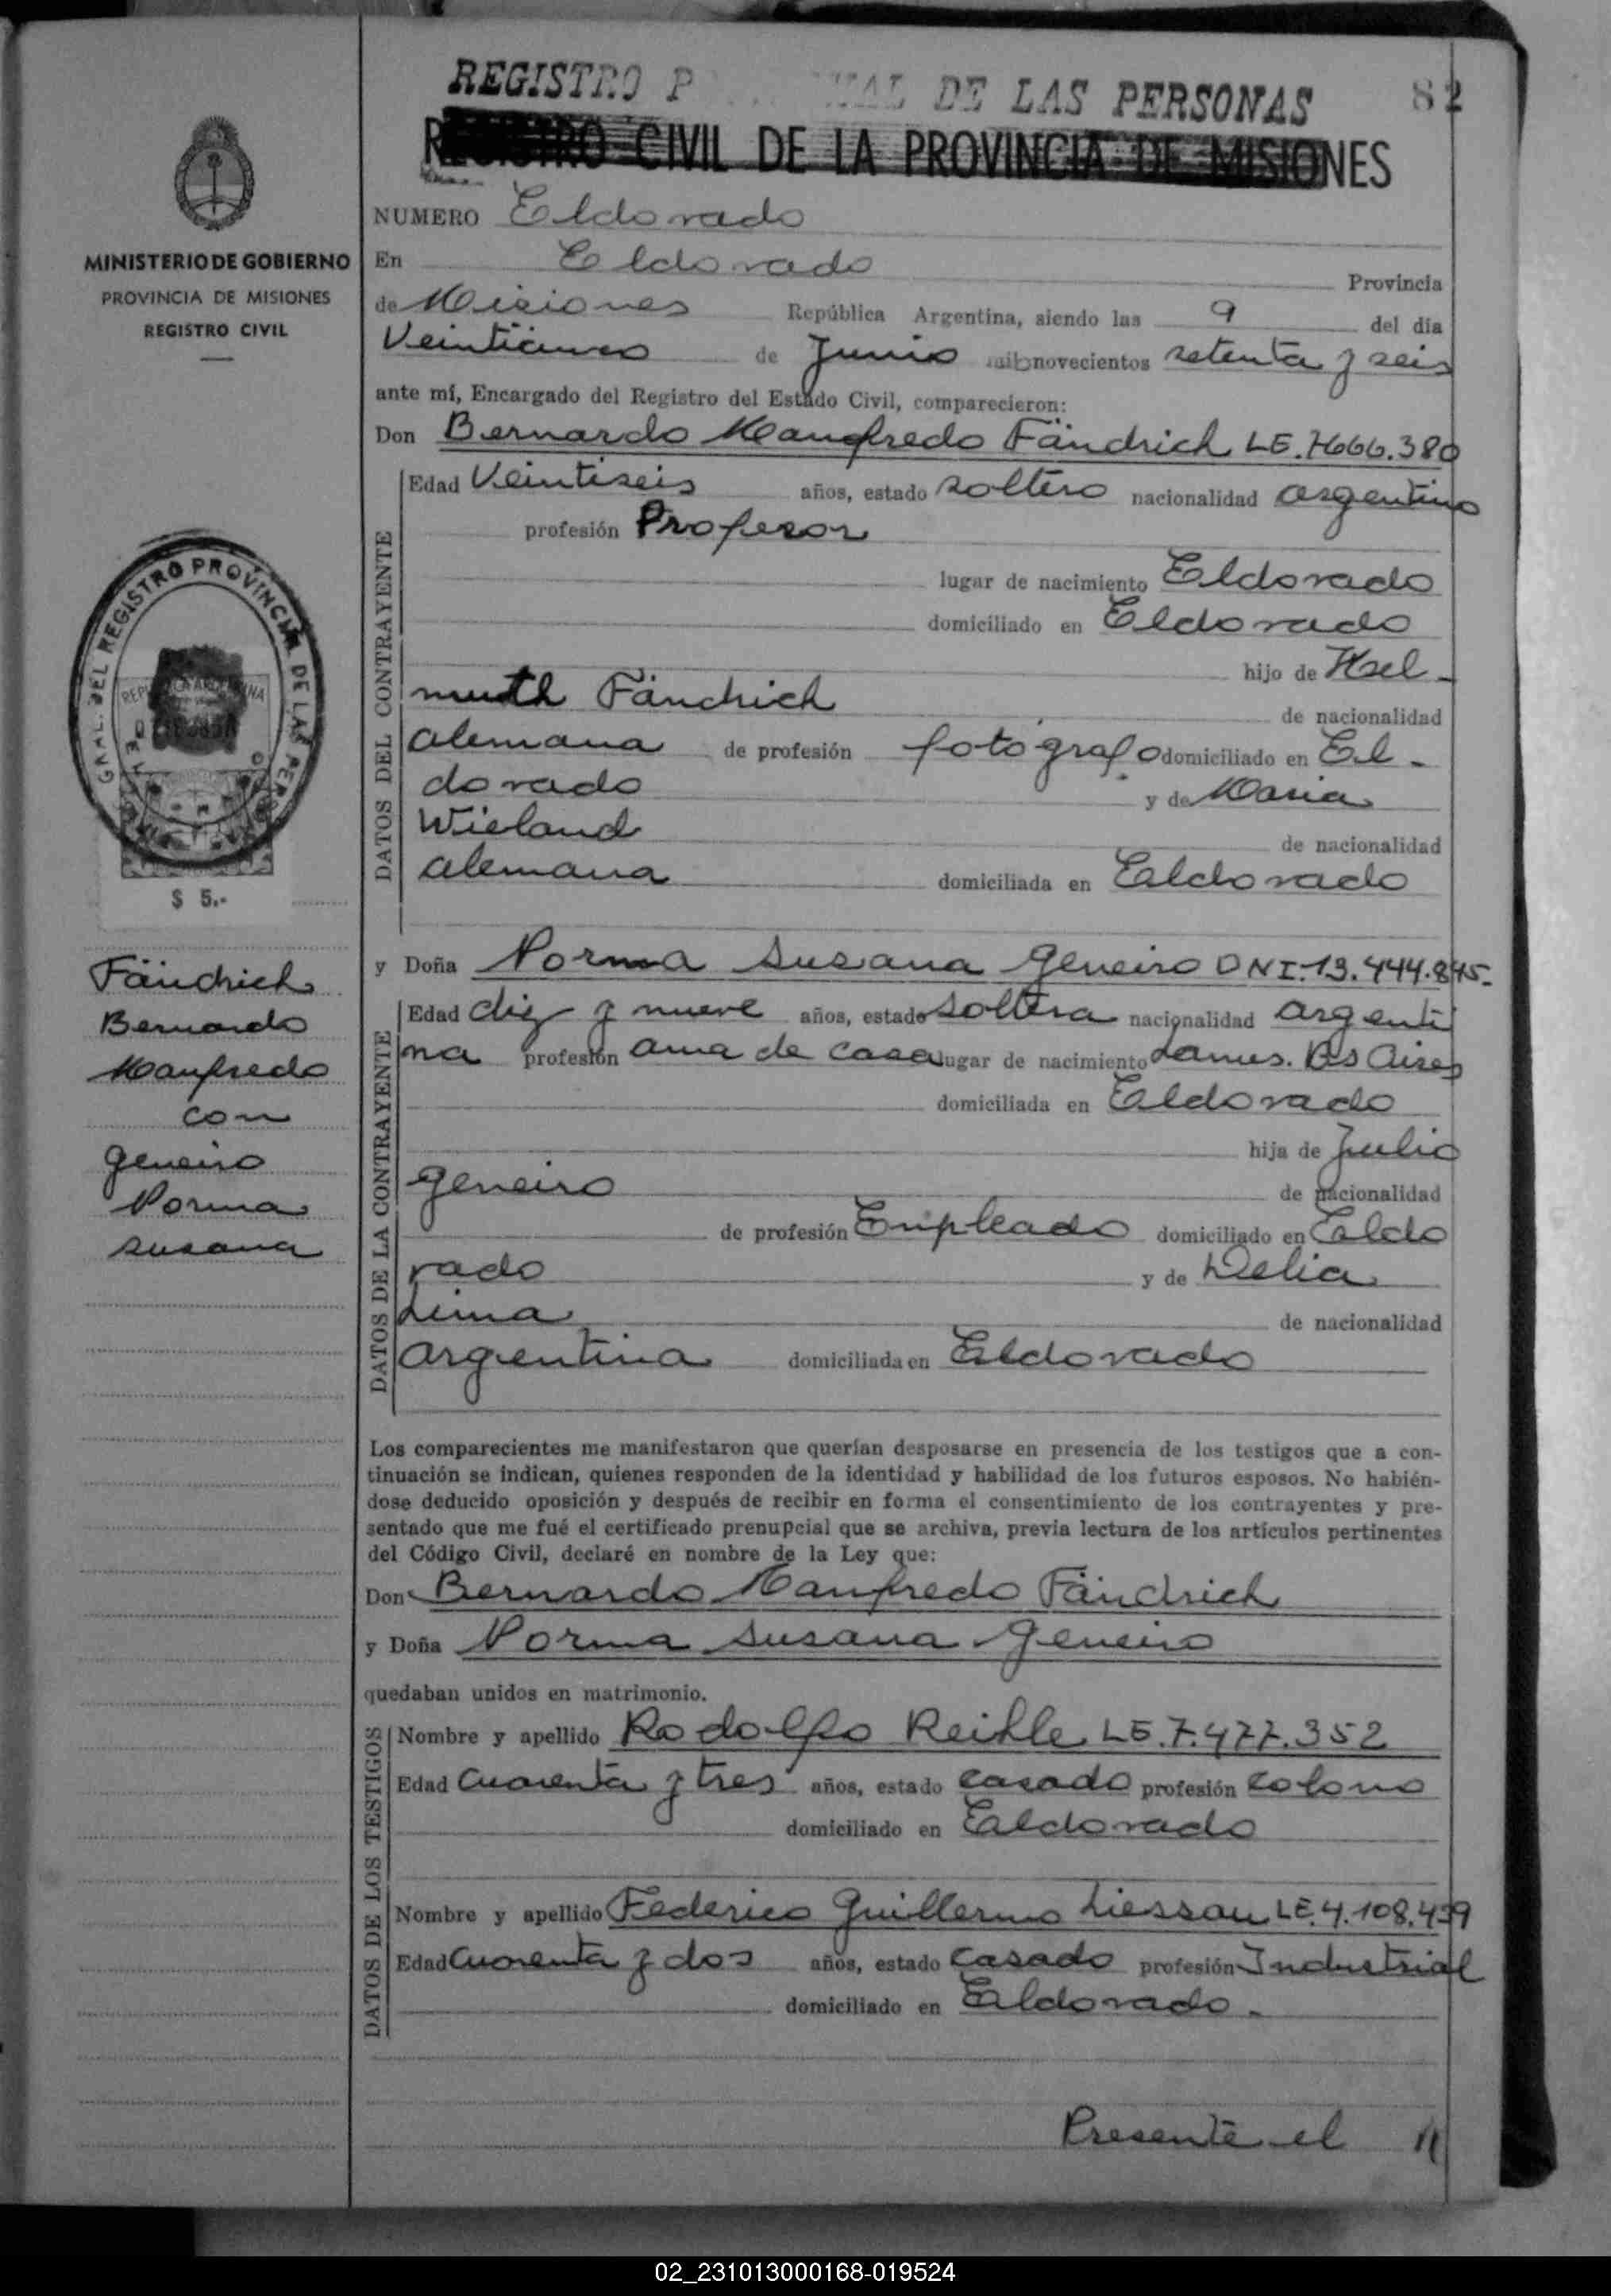 REGISTRO P NAL DE LAS PERSONAS
82
REGISTRO CIVIL DE LA PROVINCIA DE MISIONES
MINISTERIO DE GOBIERNO
PROVINCIA DE MISIONES
REGISTRO CIVIL
NUMERO Eldorado
En Eldorado Provincia
de Misiones República Argentina, siendo las 9 del día
Veinticinco de Junio mil novecientos setenta y seis
ante mí, Encargado del Registro del Estado Civil, comparecieron:
Don Bernardo Manfredo Fändrich LE. 7.666.380
DATOS DEL CONTRAYENTE
Edad Veintiseis años, estado soltero nacionalidad argentino
profesión Profesor
lugar de nacimiento Eldorado
domiciliado en Eldorado
hijo de Hel-
muth Fändrich de nacionalidad
alemana de profesión fotografo domiciliado en El-
dorado y de Maria
Wieland de nacionalidad
alemana domiciliada en Eldorado
GRAL. DEL REGISTRO PROVINCIAL DE LAS PERSONAS
REPUBLICA ARGENTINA
$ 5.-
Fändrich
Bernardo
Manfredo
con
Geneiro
Norma
Susana
y Doña Norma Susana Geneiro DNI. 13.444.845-
DATOS DE LA CONTRAYENTE
Edad diez y nueve años, estado soltera nacionalidad argenti
na profesión ama de casa lugar de nacimiento Lanus. Bs Aires
domiciliada en Eldorado
hija de Julio
Geneiro de nacionalidad
de profesión Empleado domiciliado en Eldo
rado y de Delia
Lima de nacionalidad
argentina domiciliada en Eldorado
Los comparecientes me manifestaron que querían desposarse en presencia de los testigos que a con-
tinuación se indican, quienes responden de la identidad y habilidad de los futuros esposos. No habién-
dose deducido oposición y después de recibir en forma el consentimiento de los contrayentes y pre-
sentado que me fué el certificado prenupcial que se archiva, previa lectura de los artículos pertinentes
del Código Civil, declaré en nombre de la Ley que:
Don Bernardo Manfredo Fändrich
y Doña Norma Susana Geneiro
quedaban unidos en matrimonio.
DATOS DE LOS TESTIGOS
Nombre y apellido Rodolfo Reihle LE. 7.477.352
Edad Cuarenta y tres años, estado casado profesión colono
domiciliado en Eldorado
Nombre y apellido Federico Guillermo Liessau LE. 4.108.439
Edad Cuarenta y dos años, estado casado profesión Industrial
domiciliado en Eldorado-
Presente el //
02_231013000168-019524